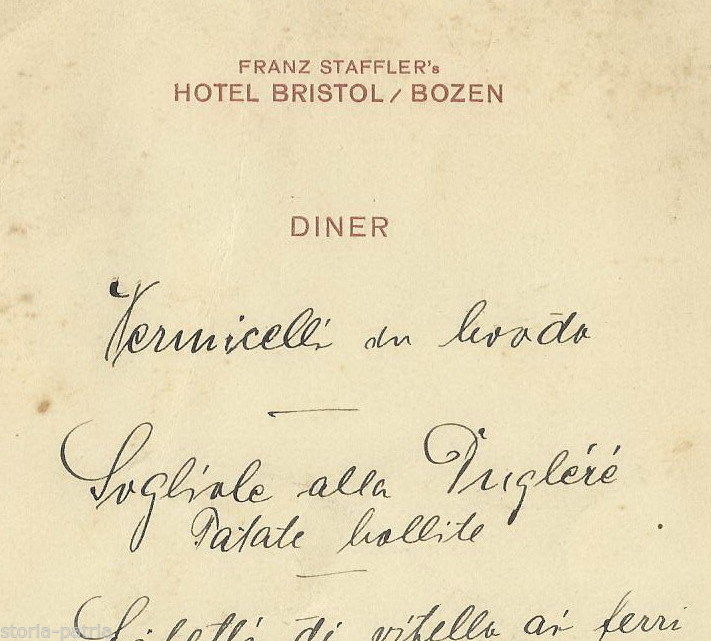 FRANZ STAFFLER's
HOTEL BRISTOL / BOZEN
DINER
Vermicelli in brodo
Sogliole alla Dugléré
Patate bollite
di vitella ai ferri
storia-patria